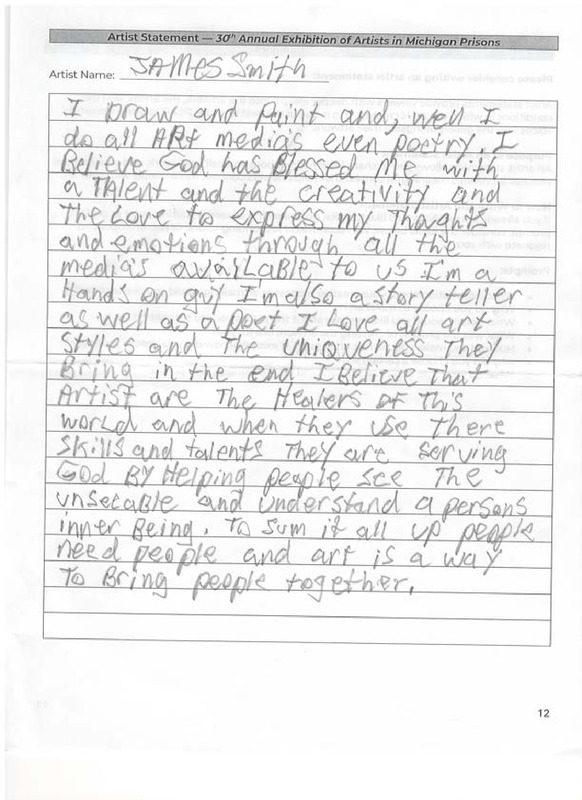 Artist Statement — 30th Annual Exhibition of Artists in Michigan Prisons
Artist Name: JAMES Smith
I Draw and Paint and, well I
do all ARt media's even poetry. I
Believe God has Blessed Me with
a TAlent and the creativity and
The Love to express my Thoghts
and emotions through all the
media's avaiLable to us I'm a
Hands on guy I'm also a story teller
as well as a poet I Love all art
styles and The uniqiveness They
Bring in the end I Believe That
Artist are The Healers of This
world and when they use there
skills and talents They are serving
God BY Helping people see The
unseeable and understand a persons
inner Being. To sum it all up people
need people and art is a way
To Bring people together.
12